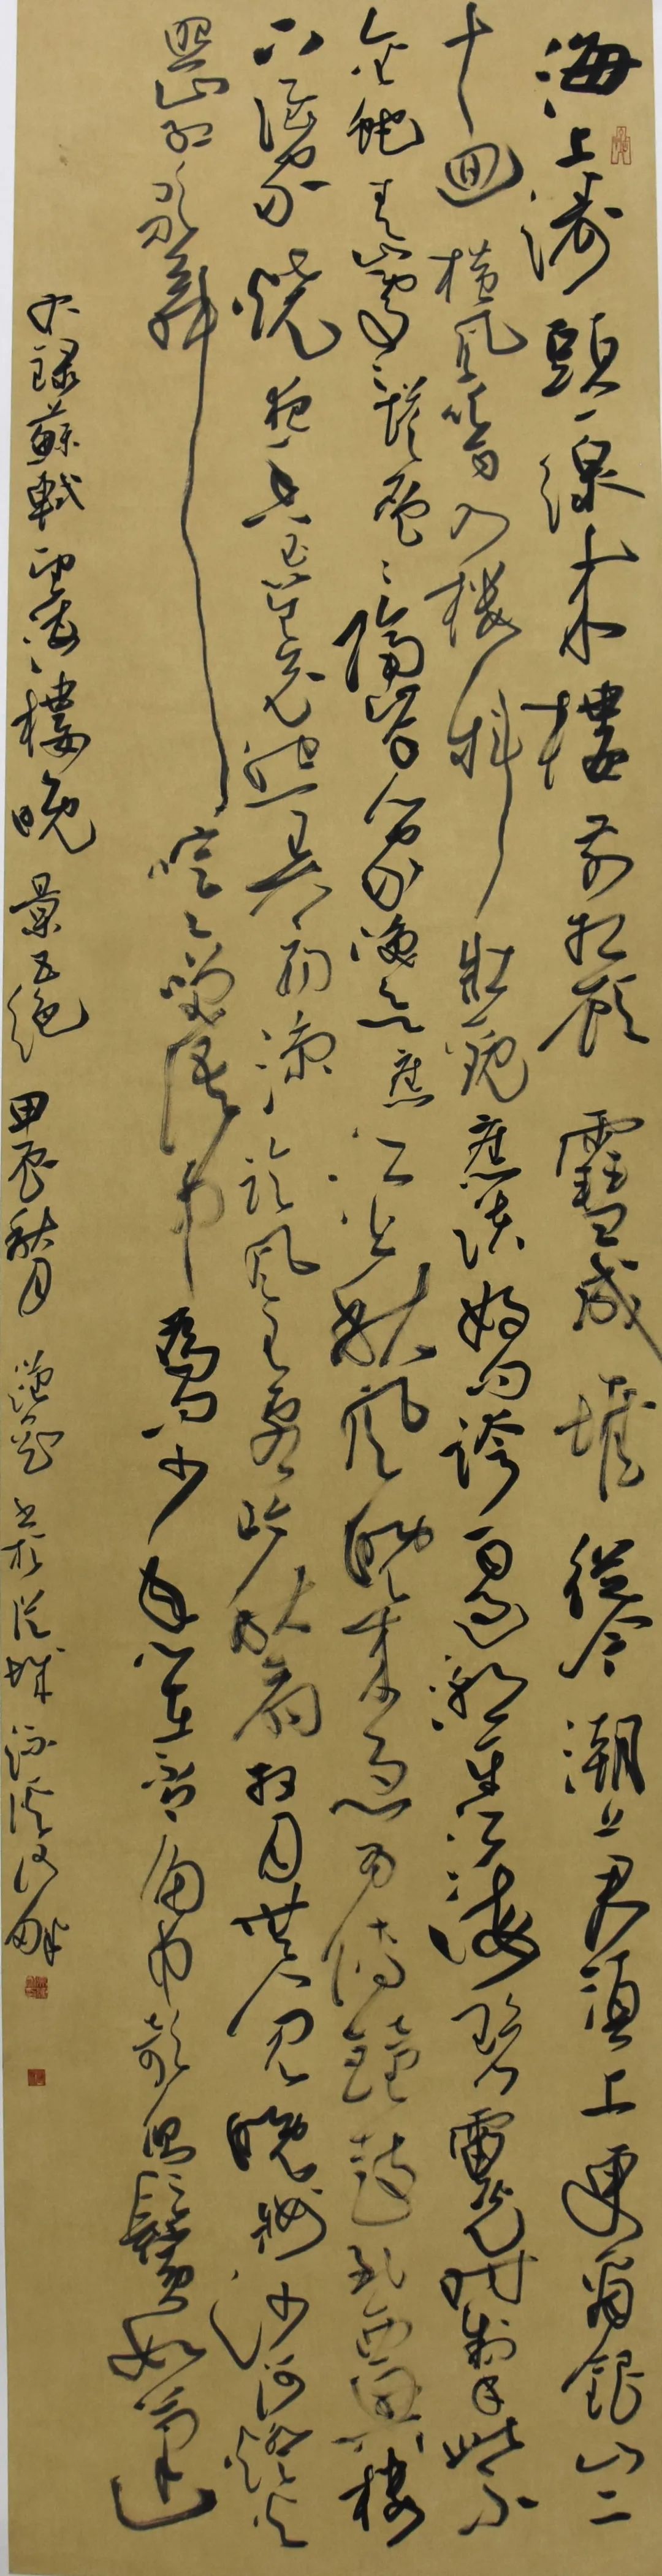 海上濤頭一線來樓前指顧雪成堆從今潮上君須上更看銀山二
十回橫風吹雨入樓斜壯觀應須好句誇雨過潮平江海碧電光時掣紫
金蛇青山斷處塔層層隔岸人家喚欲應江上秋風晚來急為傳鐘鼓到西興樓
下誰家燒夜香玉笙哀怨弄初涼臨風有客吟秋扇拜月無人見晚妝沙河燈火
照山紅歌舞喧喧笑語中為問少年心在否角巾欹側鬢如蓬
右錄蘇軾望海樓晚景五絕甲辰秋月書於